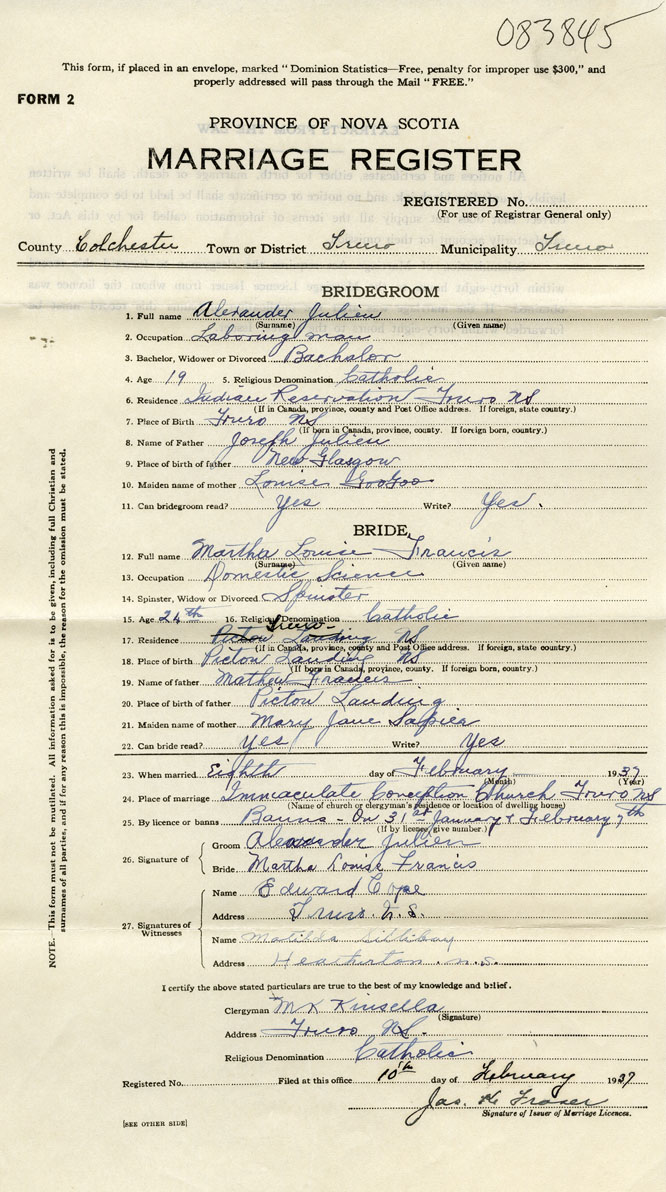 083845
This form, if placed in an envelope, marked "Dominion Statistics—Free, penalty for improper use $300," and
properly addressed will pass through the Mail "FREE."
FORM 2
PROVINCE OF NOVA SCOTIA
MARRIAGE REGISTER
REGISTERED No.
(For use of Registrar General only)
County Colchester Town or District Truro Municipality Truro
BRIDEGROOM
1. Full name Alexander Julien
(Surname) (Given name)
2. Occupation Laboring man
3. Bachelor, Widower or Divorced Bachelor
4. Age 19 5. Religious Denomination Catholic
6. Residence Indian Reservation Truro NS
(If in Canada, province, county and Post Office address. If foreign, state country.)
7. Place of Birth Truro NS
(If born in Canada, province, county. If foreign born, country.)
8. Name of Father Joseph Julien
9. Place of birth of father New Glasgow
10. Maiden name of mother Louise GooGoo
11. Can bridegroom read? Yes Write? Yes.
BRIDE
12. Full name Martha Louise Francis
(Surname) (Given name)
13. Occupation Domestic Science
14. Spinster, Widow or Divorced Spinster
15. Age 24th 16. Religious Denomination Catholic
Truro
17. Residence Picton Landing NS
(If in Canada, province, county and Post Office address. If foreign, state country.)
18. Place of birth Picton Landing NS
(If born in Canada, province, county. If foreign born, country.)
19. Name of father Mathew Francis
20. Place of birth of father Picton Landing
21. Maiden name of mother Mary Jane Sapier
22. Can bride read? Yes Write? Yes
23. When married Eighth day of February 1937
(Month) (Year)
24. Place of marriage Immaculate Conception Church Truro NS
(Name of church or clergyman's residence or location of dwelling home)
25. By licence or banns Banns - On 31st January & February 7th
(If by licence, give number.)
26. Signature of
Groom Alexander Julien
Bride Martha Louise Francis
27. Signatures of Witnesses
Name Edward Cope
Address Truro. N.S.
Name Matilda
Address Heatherton. N.S.
I certify the above stated particulars are true to the best of my knowledge and belief.
Clergyman Kinsella
(Signature)
Address Truro NS.
Religious Denomination Catholic
Registered No. Filed at this office 10th day of February 1937
Jas. H. Fraser
Signature of Issuer of Marriage Licences.
[SEE OTHER SIDE]
NOTE.—This form must not be mutilated. All information asked for is to be given, including full Christian and
surnames of all parties, and if for any reason this is impossible, the reason for the omission must be stated.